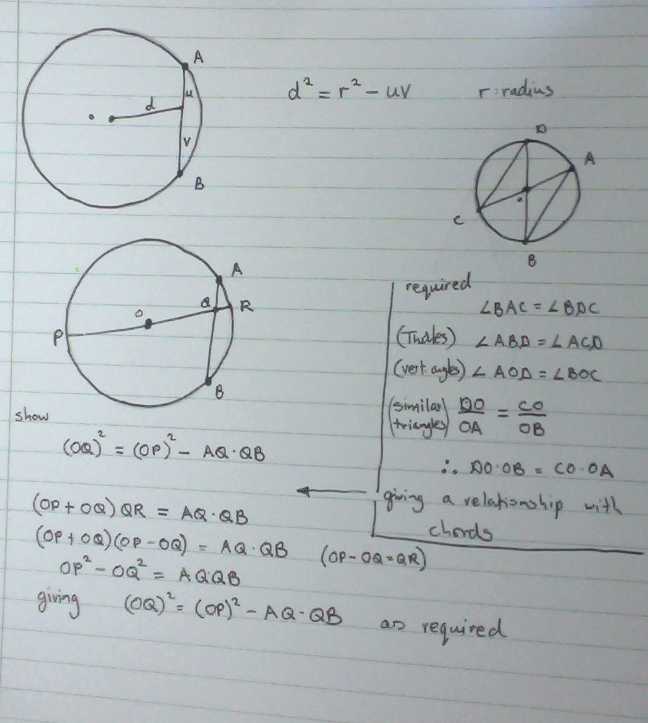 A
u
d
v
B
d² = r² - uv r: radius
D
A
o
C
B
A
Q R
O
P
B
required
∠BAC = ∠BDC
(Thales) ∠ABD = ∠ACD
(vert angles) ∠AOD = ∠BOC
(similar triangles) DO/OA = CO/OB
∴ DO·OB = CO·OA
giving a relationship with
chords
show
(OQ)² = (OP)² - AQ·QB
(OP + OQ) QR = AQ·QB
(OP + OQ)(OP - OQ) = AQ·QB (OP - OQ = QR)
OP² - OQ² = AQQB
giving (OQ)² = (OP)² - AQ·QB as required